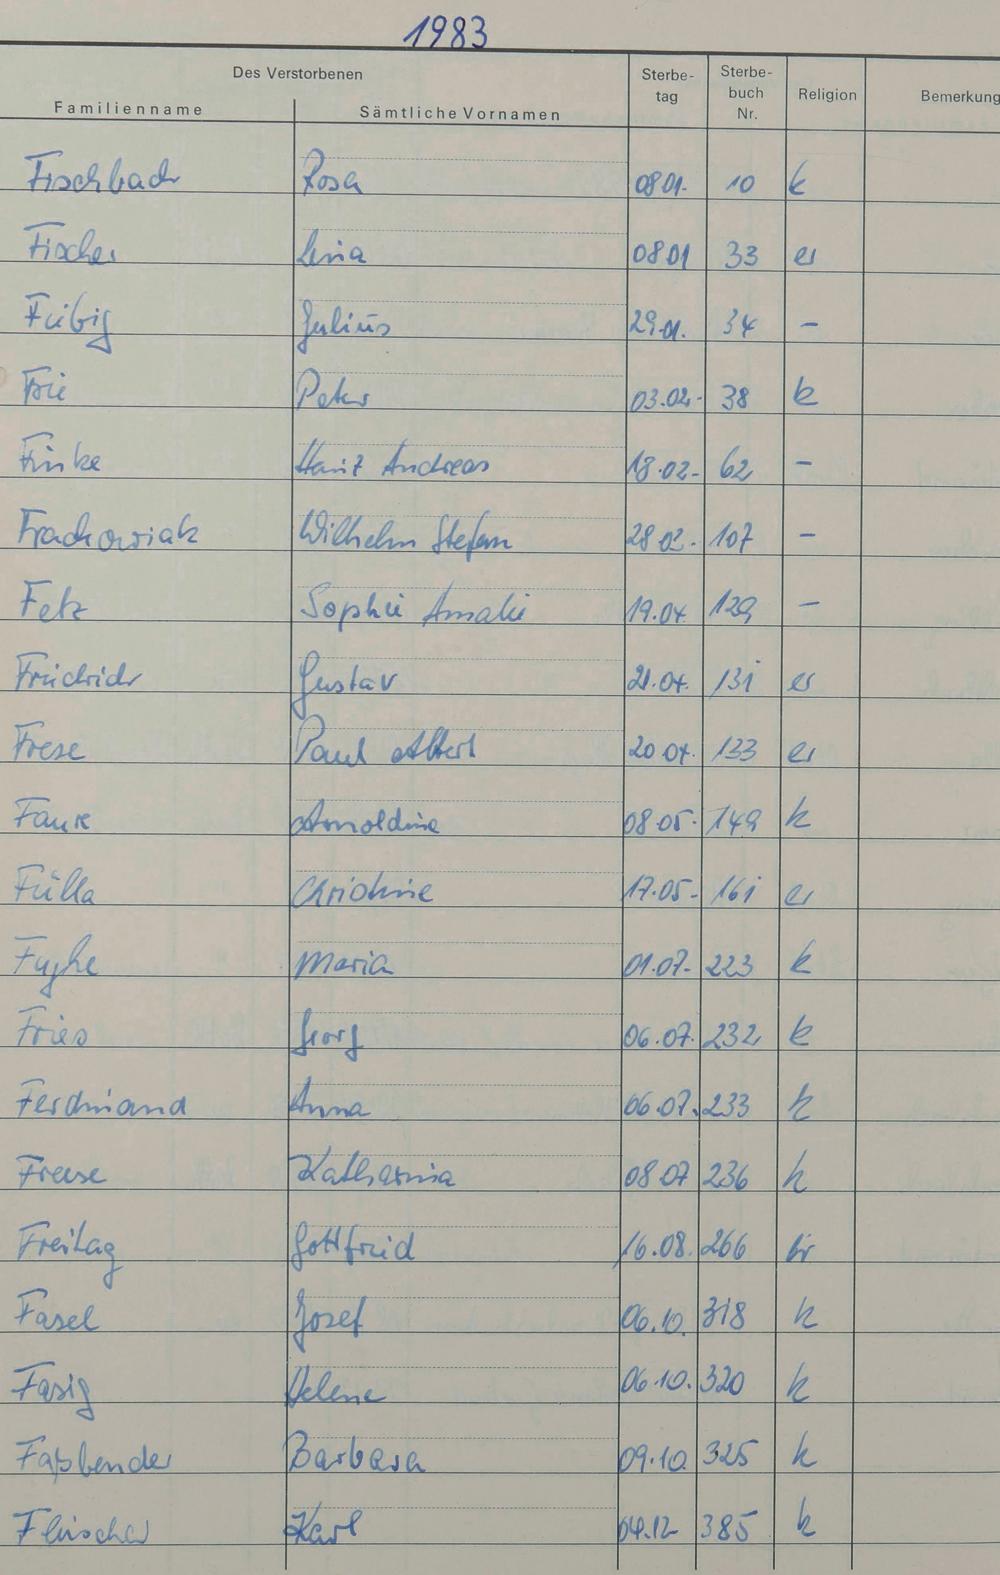 1983
Des Verstorbenen
Familienname Sämtliche Vornamen Sterbe-tag Sterbe-buch Nr. Religion Bemerkung
Fischbach Rosa 08.01. 10 k
Fischer Lina 08.01 33 ev
Fiebig Julius 29.01. 34 –
Frie Peter 03.02. 38 k
Finke Hanz Andreas 18.02. 62 –
Frackowiak Wilhelm Stefan 28.02. 107 –
Fetz Sophie Amalie 19.04. 129 –
Friedrich Gustav 21.04. 131 ev
Frese Paul Albert 20.04. 133 ev
Arnoldine 08.05. 149 k
Fülla Christine 17.05. 161 ev
Maria 01.07. 223 k
Fries Georg 06.07. 232 k
Ferdinand Anna 06.07. 233 k
Freese Katharina 08.07 236 k
Freitag Gottfried 16.08. 266
Fasel Josef 06.10. 318 k
Fasig Helene 06.10. 320 k
Faßbender Barbara 09.10. 325 k
Fleischer Karl 04.12. 385 k